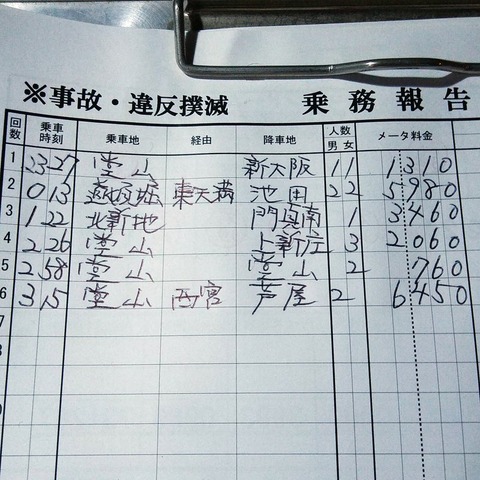 ※事故・違反撲滅 乗務報告
回数 乗車時刻 乗車地 経由 降車地 人数 男 女 メータ料金
1 23 27 堂山 新大阪 1 1 1310
2 0 13 東天満 池田 2 2 5980
3 1 22 北新地 門真南 1 3460
4 2 26 堂山 上新庄 3 2060
5 2 58 堂山 堂山 2 760
6 3 15 堂山 西宮 芦屋 2 6450
7
8
9
0
1
2
3
4